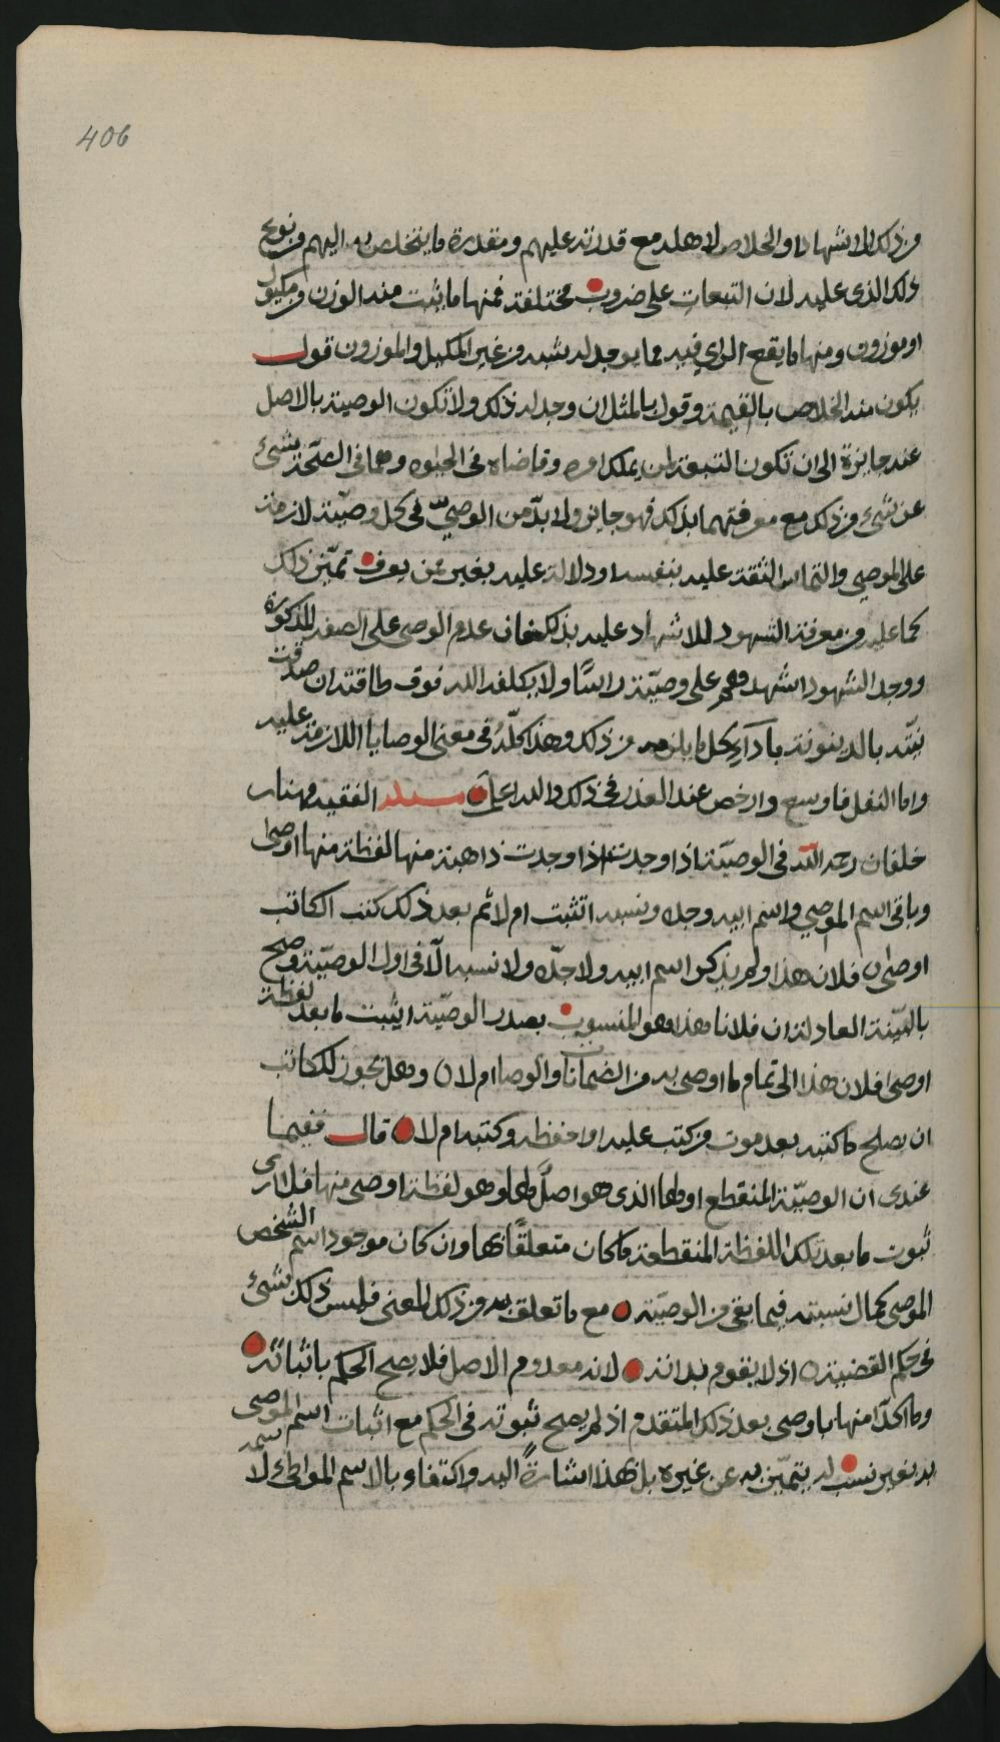 406
من ذلك الاشهاد والخلاص لاهله مع قدرته عليهم ومقدرة ما يتخلص به اليهم من نوع
ذلك الذي عليه لان التبعات على ضروب مختلفة فمنها ما يثبت منه الوزن ومكيول
او موزون ومنها ما يقع الراي فيه فما يوجد له شبه من غير المكيل والموزون قول
يكون منه الخلاص بالقيمة وقول بالمثل ان وجد له ذلك ولا تكون الوصية بالاصل
عنه جايزة الى ان تكون التبعة لمن يملك امره وقاضاه في الحياه وهما في الصّحة بشئ
عن شئ من ذلك مع معرفتهما بذلك فهو جايز ولا بدّ من الوصيّ في كل وصيّة لازمة
على الموصي والتماس الثقة عليه بنفسه او دلالة عليه بغير من يعرف تميّز ذلك
كما عليه من معرفة الشهود للاشهاد عليه بذلك فان عدم الوصي على الصفة المذكورة
ووجد الشهود اشهدهم على وصيّته راسًا ولا يكلفه الله فوق طاقته ان صدقت
نيّته بالدينونة بادآء كل ما يلزمه من ذلك وهذا كلّه في معنى الوصايا اللازمة عليه
واما النفل فاوسع وارخص عند العذر في ذلك والله اعلم مسئلة الفقيه مهنا بن
خلفان رحمه الله في الوصيّة اذا وجدت اذا وجدت ذاهبة منها لفظة منها اوصى
وباقي اسم الموصي واسم ابيه وجده ونسبه اتثبت ام لا ثم بعد ذلك كتب الكاتب
اوصى فلان هذا ولم يذكر اسم ابيه ولا جدّه ولا نسبه الّا في اول الوصيّة وصح
بالبيّنة العادلة ان فلانا هذا هو المنسوب بصدر الوصيّة ايثبت ما بعد لفظة
اوصى فلان هذا الى تمام ما اوصى به من الضمانات والوصايا ام لا وهل يجوز للكاتب
ان يصلح ما كتبه بعد موت من كتب عليه اوا حفظه وكتبه ام لا قال ففيما
عندي ان الوصيّة المنقطع اولها الذي هو اصلٌ لها وهو لفظة اوصى منها فلا ارى
ثبوت ما بعد تلك اللفظة المنقطعة ما كان متعلقًا بها وان كان موجودا اسم الشخص
الموصي كمال نسبته فيما بقي من الوصيّة مع ما تعلق به من ذلك المعنى فليس ذلك بشئ
في حكم القضية اذ لا يقوم بذاته لانه معدوم الاصل فلا يصح الحكم باثباته
وما اكدّ منها باوصى بعد ذلك المتقدم اذ لم يصح ثبوته في الحكم مع اثبات اسم الموصي
به بغير نسب له يتميّز به عن غيره بل بهذا اشارةً اليه واكتفاء بالاسم المواطئ لاسمه لا